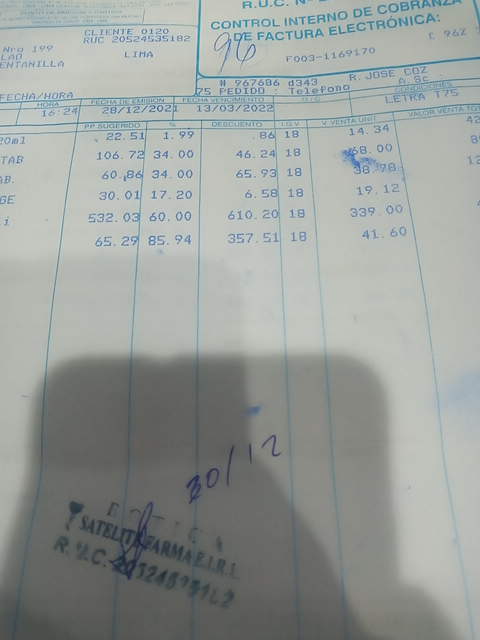 R.U.C. Nº
CONTROL INTERNO DE COBRANZA
DE FACTURA ELECTRÓNICA:
96
F003-1169170
CLIENTE 0120
RUC 20524535182
Nro 199
LIMA
ENTANILLA
N 967686 d343
R. JOSE COZ
75 PEDIDO : Telefono
A. Sc.
FECHA/HORA
HORA
FECHA DE EMISION
FECHA VENCIMIENTO
O/C
CONDICIONES
16:24
28/12/2021
13/03/2022
LETRA T75
PP SUGERIDO
%
DESCUENTO
I.G.V.
V.VENTA UNIT.
VALOR VENTA TOT
20ml 22.51 1.99 .86 18 14.34 42
TAB 106.72 34.00 46.24 18 68.00
AB. 60.86 34.00 65.93 18 38.78 12
GE 30.01 17.20 6.58 18 19.12
i 532.03 60.00 610.20 18 339.00
65.29 85.94 357.51 18 41.60
30/12
SATELITE FARMA E.I.R.L
R.U.C.